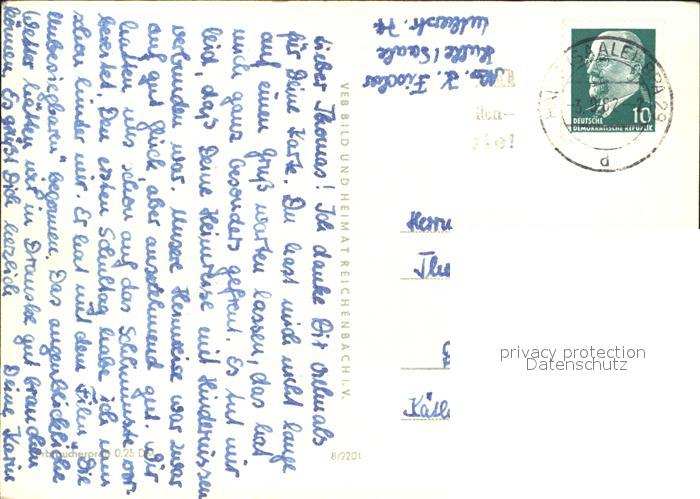 Abs. K. Fischer
Halle/Saale
Lutherstr. 74
Lieber Thomas! Ich danke Dir vielmals
für Deine Karte. Du hast mich nicht lange
auf einen Gruß warten lassen, das hat
mich ganz besonders gefreut. Es tut mir
leid, dass Deine Heimreise mit Hindernissen
verbunden war. Unsere Heimreise war zwar
auf gut Glück, aber ausreichend gut. Wir
hatten uns schon auf das Schlimmste vor-
bereitet. Den ersten Schultag habe ich nun
schon hinter mir. Er hat mit dem Film „Die
Unbesiegbaren" begonnen. Das augenblickliche
Wetter hätten wir in Dranske gut brauchen
können. Es grüßt Dich herzlich
Deine Karin
VEB BILD UND HEIMAT REICHENBACH I. V.
Verbraucherpreis 0,25 DM
8/2201
DEUTSCHE
DEMOKRATISCHE REPUBLIK
10
HALLE (SAALE)
29
d
Herrn
privacy protection
Datenschutz